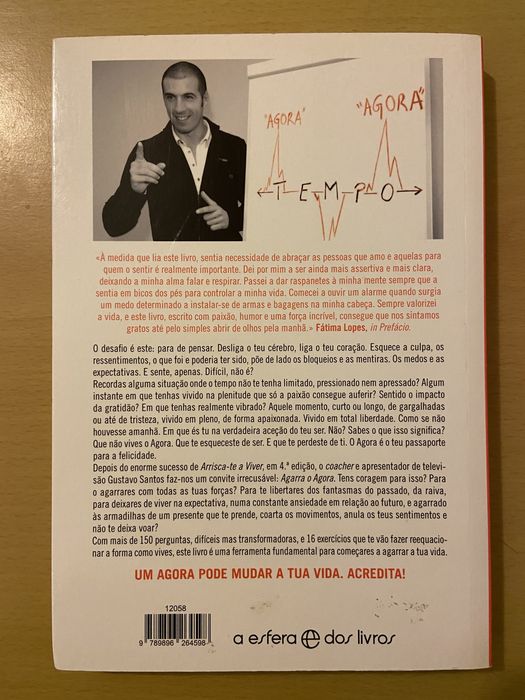 "AGORA" "AGORA"
T E M P O
«À medida que lia este livro, sentia necessidade de abraçar as pessoas que amo e aquelas para
quem o sentir é realmente importante. Dei por mim a ser ainda mais assertiva e mais clara,
deixando a minha alma falar e respirar. Passei a dar raspanetes à minha mente sempre que a
sentia em bicos dos pés para controlar a minha vida. Comecei a ouvir um alarme quando surgia
um medo determinado a instalar-se de armas e bagagens na minha cabeça. Sempre valorizei
a vida, e este livro, escrito com paixão, humor e uma força incrível, consegue que nos sintamos
gratos até pelo simples abrir de olhos pela manhã.» Fátima Lopes, in Prefácio.
O desafio é este: para de pensar. Desliga o teu cérebro, liga o teu coração. Esquece a culpa, os
ressentimentos, o que foi e poderia ter sido, põe de lado os bloqueios e as mentiras. Os medos e as
expectativas. E sente, apenas. Difícil, não é?
Recordas alguma situação onde o tempo não te tenha limitado, pressionado nem apressado? Algum
instante em que tenhas vivido na plenitude que só a paixão consegue auferir? Sentido o impacto
da gratidão? Em que tenhas realmente vibrado? Aquele momento, curto ou longo, de gargalhadas
ou até de tristeza, vivido em pleno, de forma apaixonada. Vivido em total liberdade. Como se não
houvesse amanhã. Em que és tu na verdadeira aceção do teu ser. Não? Sabes o que isso significa?
Que não vives o Agora. Que te esqueceste de ser. E que te perdeste de ti. O Agora é o teu passaporte
para a felicidade.
Depois do enorme sucesso de Arrisca-te a Viver, em 4.ª edição, o coacher e apresentador de televi-
são Gustavo Santos faz-nos um convite irrecusável: Agarra o Agora. Tens coragem para isso? Para
o agarrares com todas as tuas forças? Para te libertares dos fantasmas do passado, da raiva,
para deixares de viver na expectativa, numa constante ansiedade em relação ao futuro, e agarrado
às armadilhas de um presente que te prende, coarta os movimentos, anula os teus sentimentos e
não te deixa voar?
Com mais de 150 perguntas, difíceis mas transformadoras, e 16 exercícios que te vão fazer reequacio-
nar a forma como vives, este livro é uma ferramenta fundamental para começares a agarrar a tua vida.
UM AGORA PODE MUDAR A TUA VIDA. ACREDITA!
12058
9 789896 264598
a esfera dos livros